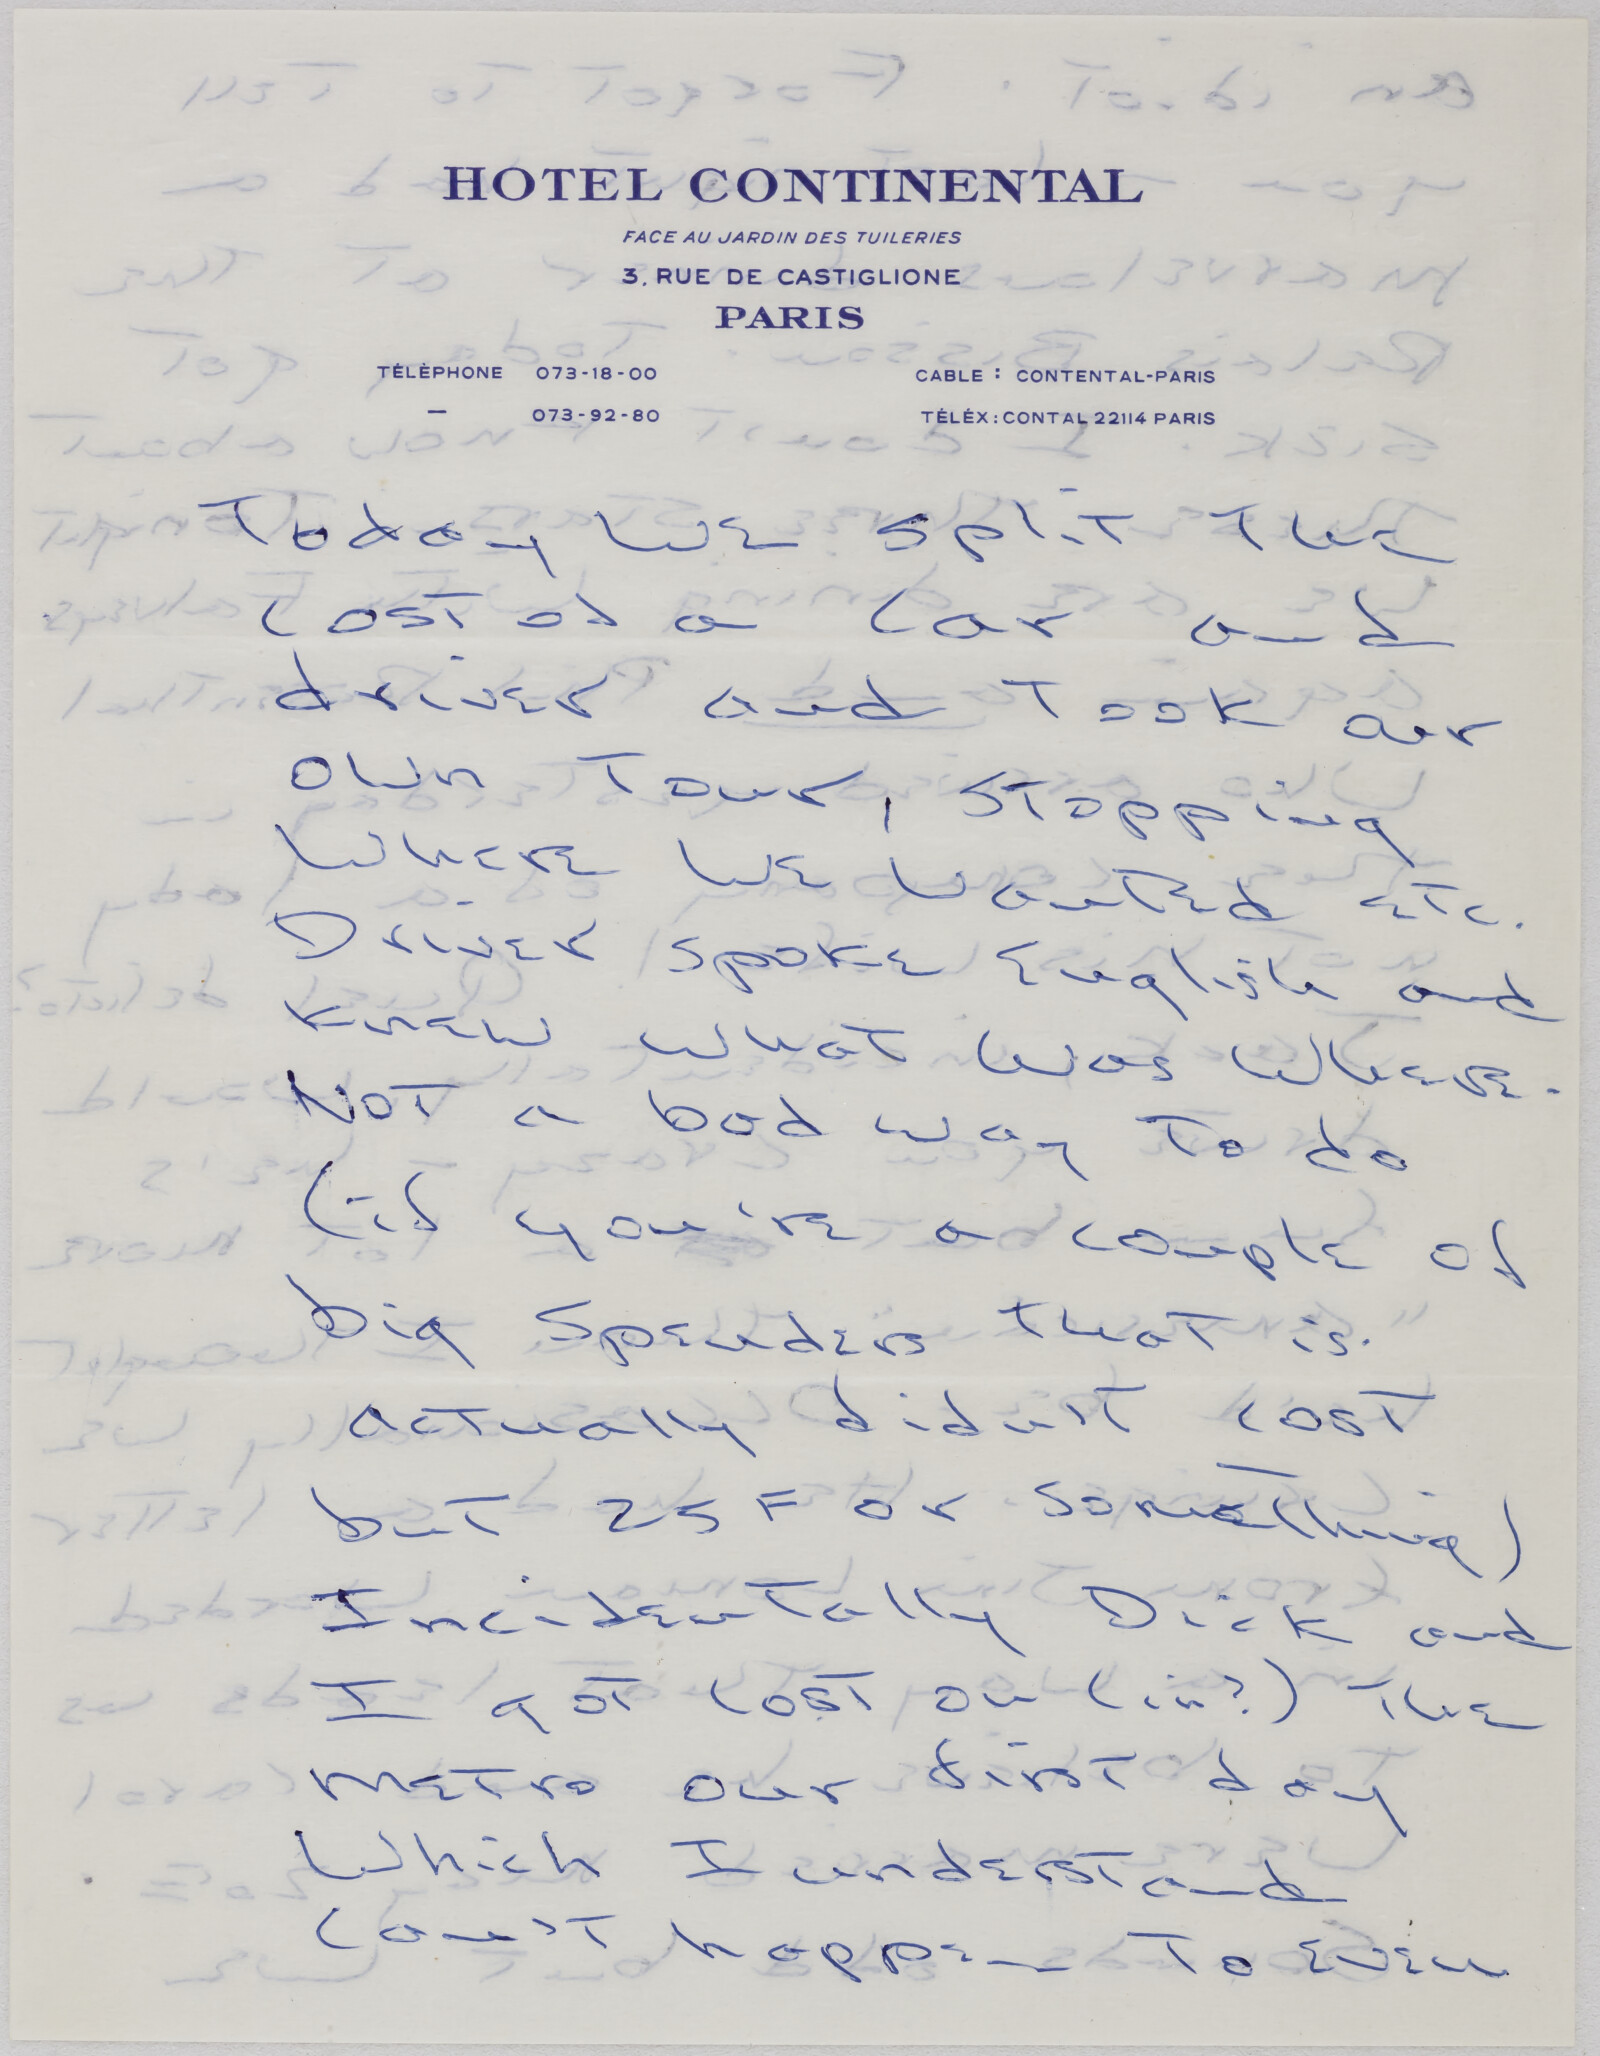 HOTEL CONTINENTAL
FACE AU JARDIN DES TUILERIES
3, RUE DE CASTIGLIONE
PARIS
TÉLÉPHONE 073-18-00 CABLE : CONTENTAL-PARIS
— 073-92-80 TÉLÉX : CONTAL 22114 PARIS
Today we split the
cost of a car and
driver and took our
own tour, stopping
where we wanted etc.
Driver spoke English and
knew what was where.
Not a bad way to do
(if you're a couple of
big spenders that is.
actually didn't cost
but 25 F or something)
Incidentally Dick and
I got lost on (in?) the
metro our first day
which I understand
can't happen to even